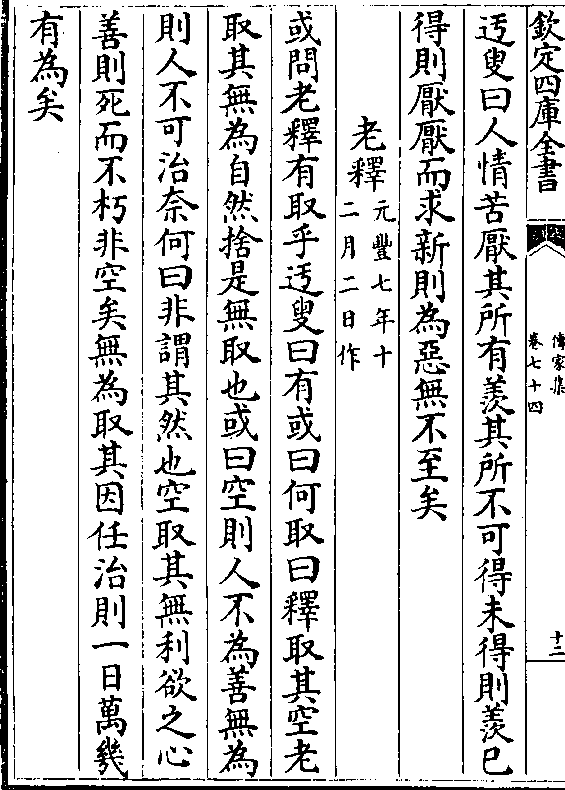 欽定四庫全書
傳家集
卷七十四
十二
迃叟曰人情苦厭其所有羨其所不可得未得則羨已
得則厭厭而求新則為惡無不至矣
老釋元豐七年十
二月二日作
或問老釋有取乎迃叟曰有或曰何取曰釋取其空老
取其無為自然捨是無取也或曰空則人不為善無為
則人不可治奈何曰非謂其然也空取其無利欲之心
善則死而不朽非空矣無為取其因任治則一日萬㡬
有為矣